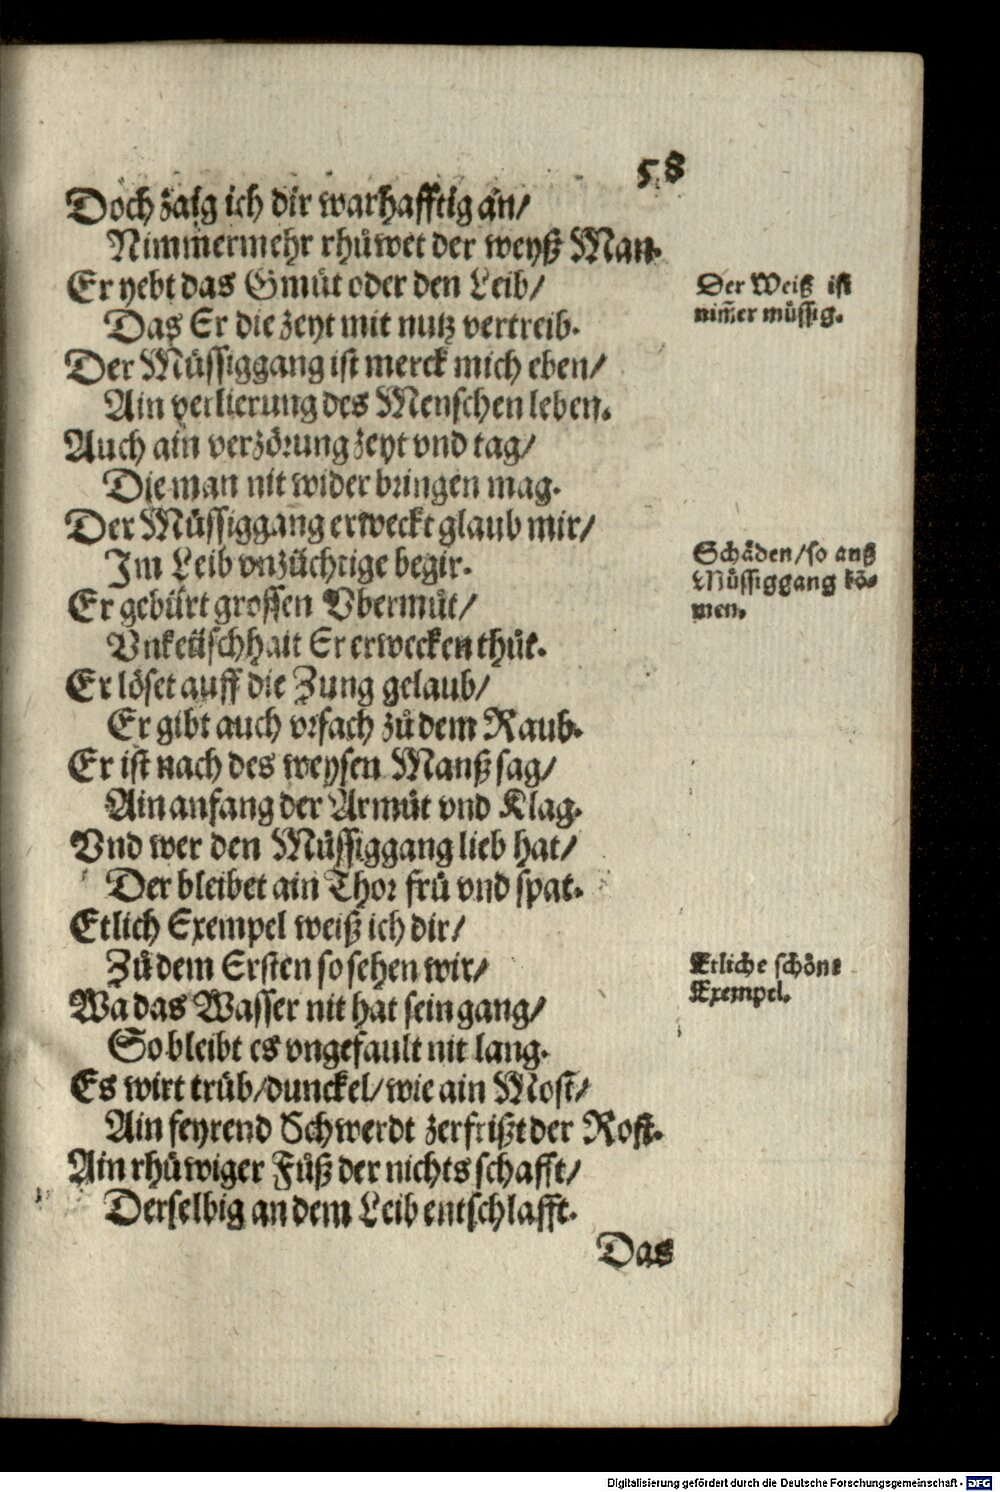 58
Doch zaig ich dir warhafftig an/
Nimmermehr rhůwet der weyß Man.
Er yebt das Gmüt oder den Leib/
Das Er die zeyt mit nutz vertreib.
Der Weiß ist
nim̃er müssig.
Der Müssiggang ist merck mich eben/
Ain verlierung des Menschen leben.
Auch ain verzörung zeyt vnd tag/
Die man nit wider bringen mag.
Der Müssiggang erweckt glaub mir/
Im Leib vnzüchtige begir.
Schäden/so auß
Müssiggang kö-
men.
Er gebürt grossen Vbermůt/
Vnkeüschhait Er erwecken thůt.
Er löset auff die Zung gelaub/
Er gibt auch vrsach zů dem Raub.
Er ist nach des weysen Manß sag/
Ain anfang der Armůt vnd Klag.
Vnd wer den Müssiggang lieb hat/
Der bleibet ain Thor frů vnd spat.
Etlich Exempel weiß ich dir/
Zů dem Ersten so sehen wir/
Etliche schöne
Exempel.
Wa das Wasser nit hat sein gang/
So bleibt es vngefault nit lang.
Es wirt trüb/dunckel/wie ain Most/
Ain feyrend Schwerdt zerfrißt der Rost.
Ain rhůwiger Fůß der nichts schafft/
Derselbig an dem Leib entschlafft.
Das
Digitalisierung gefördert durch die Deutsche Forschungsgemeinschaft - DFG